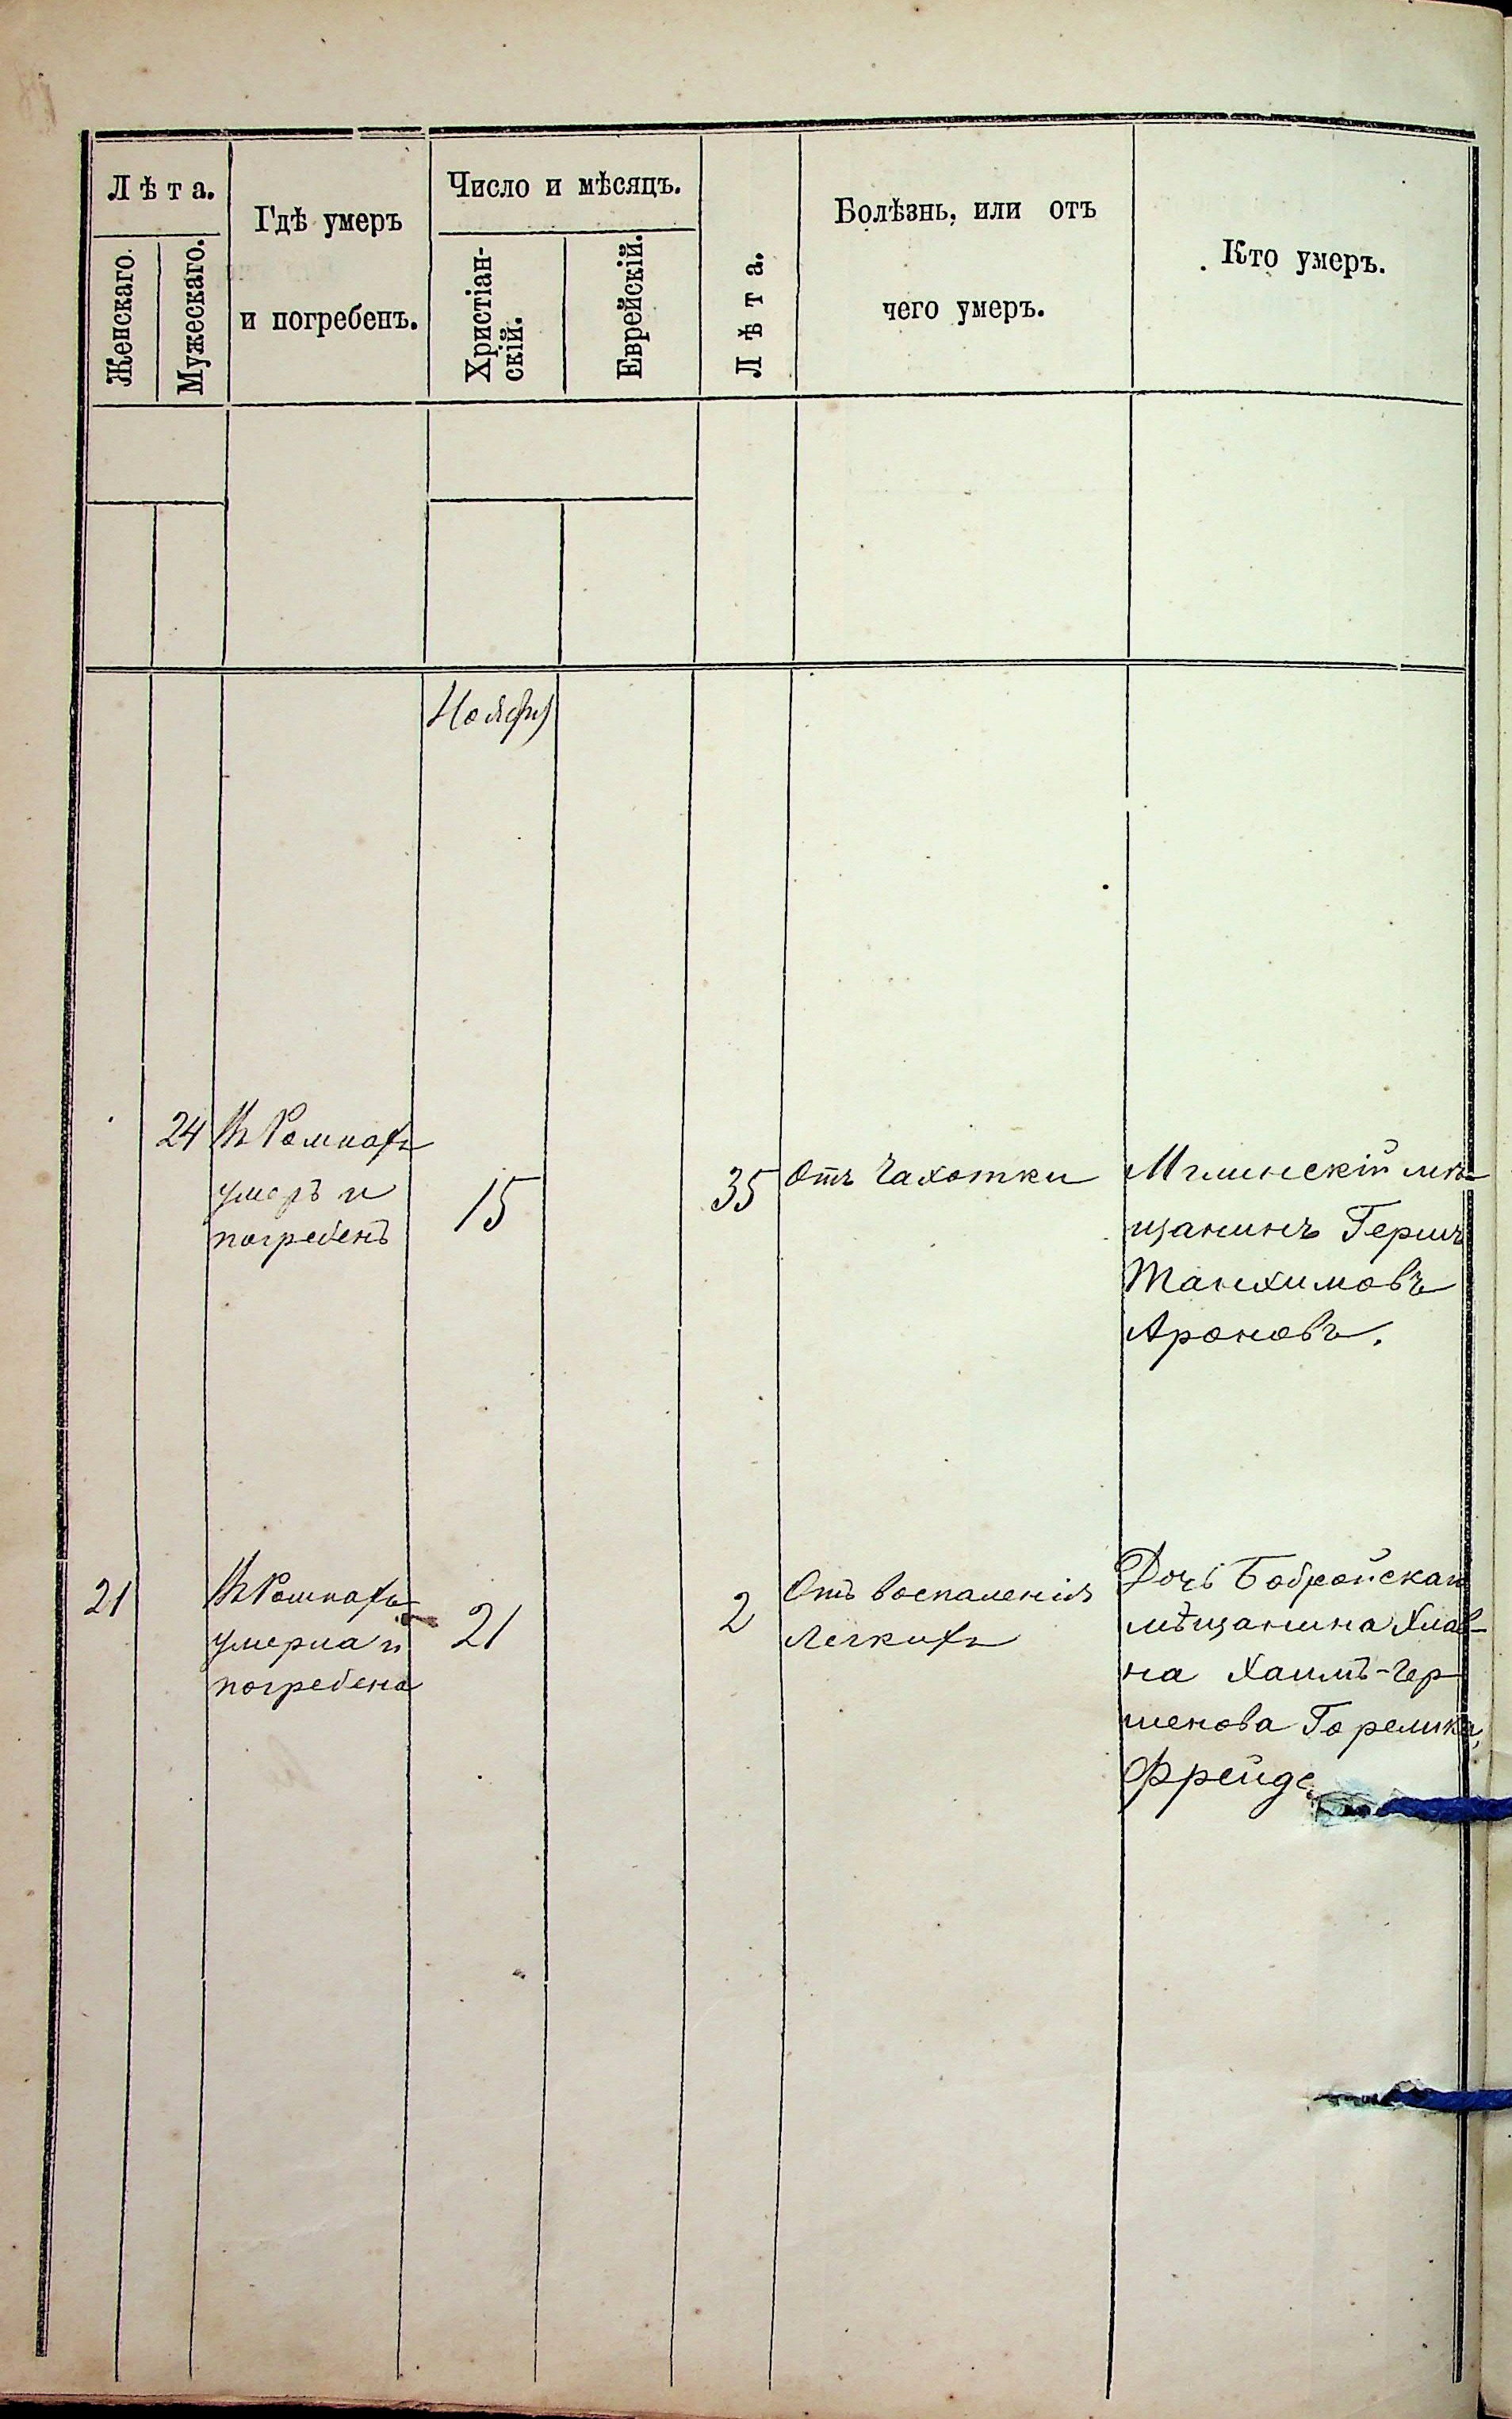 Лѣта.
Женскаго.
Мужескаго.
Гдѣ умеръ
и погребенъ.
Число и мѣсяцъ.
Христіан-
скій.
Еврейскій.
Лѣта.
Болѣзнь, или отъ
чего умеръ.
Кто умеръ.
Ноября
24
Въ Ромнахъ
умеръ и
погребенъ
15
35
Отъ Чахотки
Мглинскій мѣ-
щанинъ Гершъ
Танхимовъ
Ароновъ.
21
Въ Ромнахъ
умерла и
погребена
21
2
Отъ воспаленія
Легкихъ
Дочь Бобройскаго
мѣщанина Хлав-
на Хаимъ-Гер-
шенова Горелика,
Фрейде.